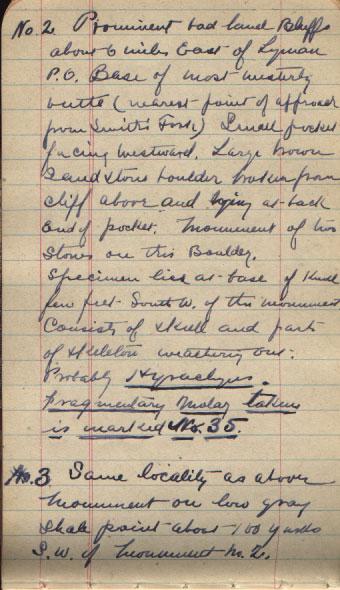 No. 2 Prominent bad land Bluffs
about 6 miles East of Lyman
P.O. Base of most westerly
butte (nearest point of approach
from Smith's Fork,) Small pocket
facing westward. Large brown
Sandstone boulder broken from
cliff above and lying at back
end of pocket. Monument of two
Stones on this Boulder.
Specimen lies at base of Knoll
few feet South W. of this monument
Consists of Skull and parts
of Skeleton weathering out.
Probably Hyrachyus.
Fragmentary Molar taken
is marked No. 35.
No. 3 Same locality as above
Monument on low gray
Shale point about 100 yards
S.W. of Monument No. 2.